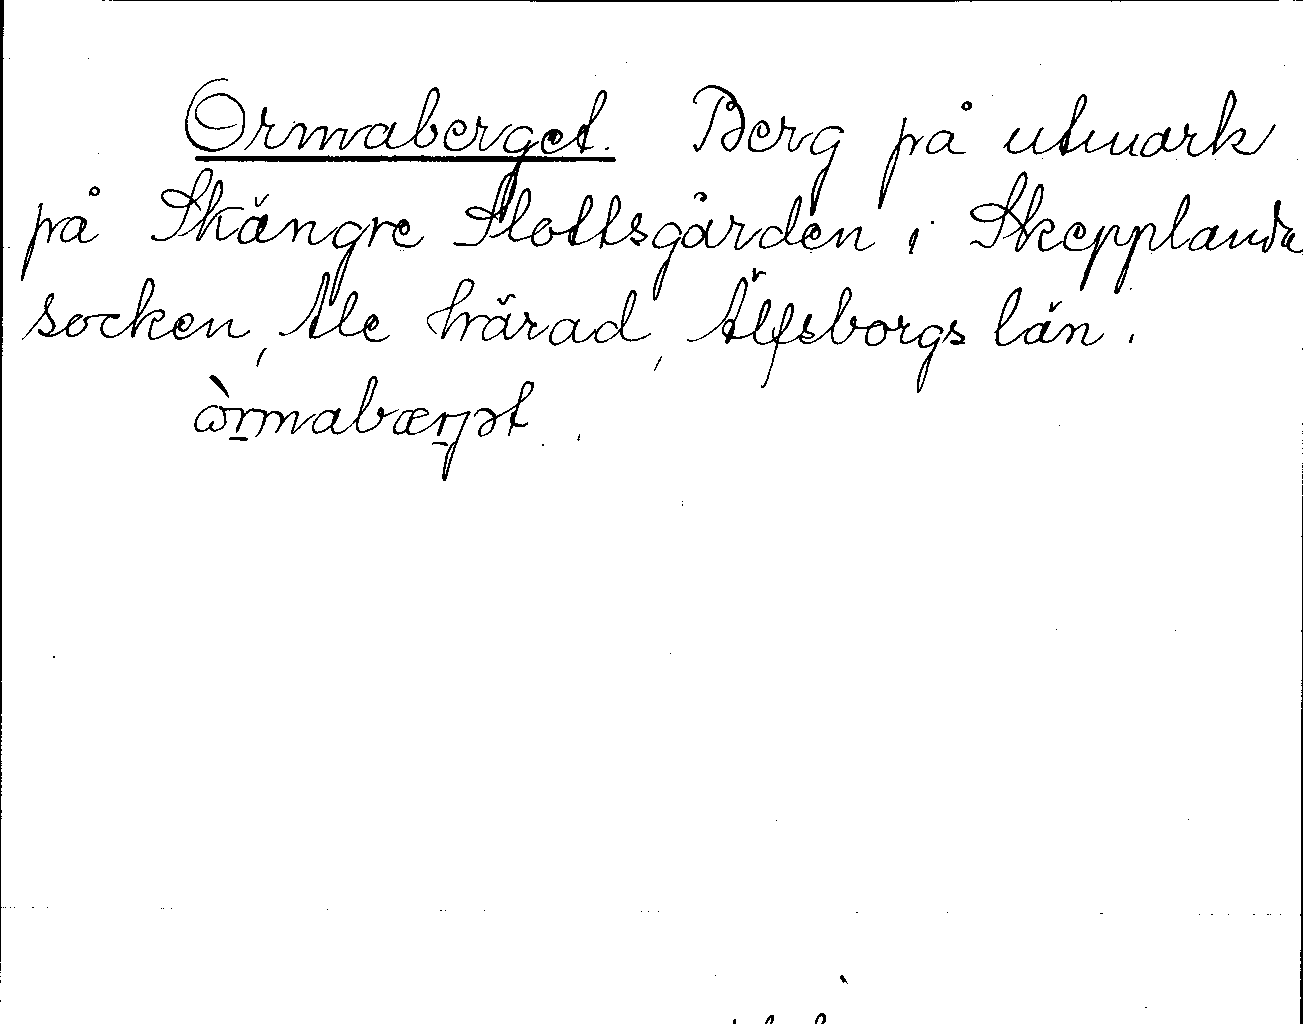 Ormaberget. Berg på utmark
på Skängre Slottsgården i Skepplanda
socken, Ale härad, Älfsborgs län.
ὼrmabærjət.